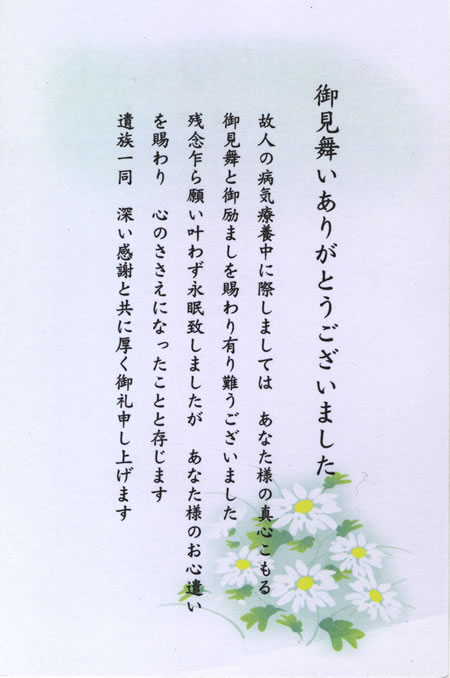 御見舞いありがとうございました
故人の病気療養中に際しましては　あなた様の真心こもる
御見舞と御励ましを賜わり有り難うございました
残念乍ら願い叶わず永眠致しましたが　あなた様のお心遣い
を賜わり　心のささえになったことと存じます
遺族一同　深い感謝と共に厚く御礼申し上げます